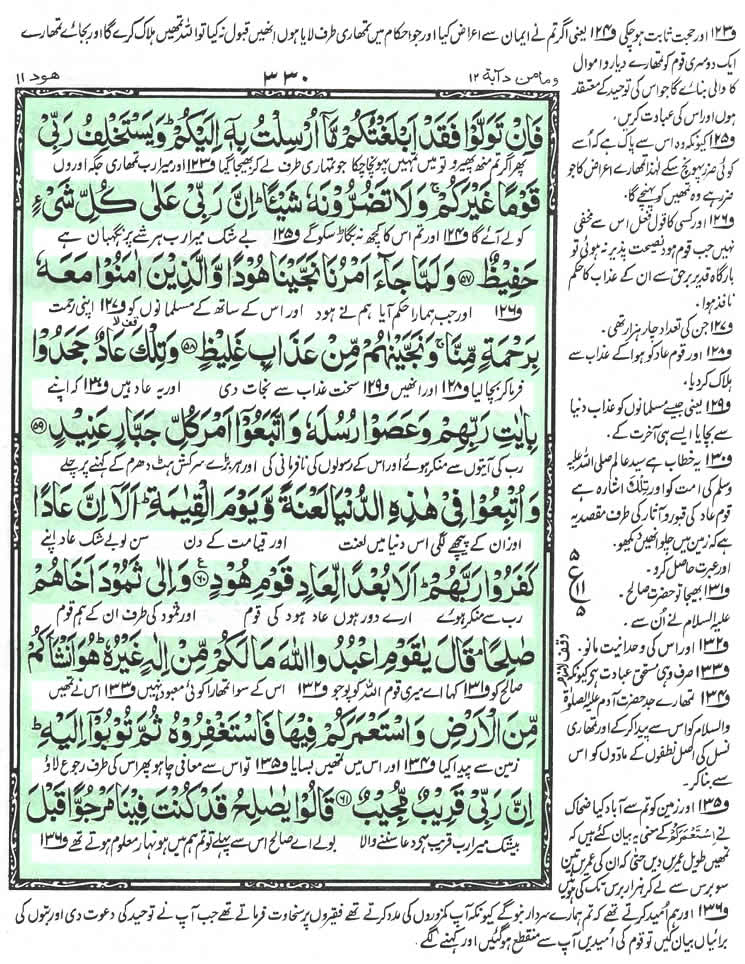 و۱۲۳ اور حجت ثابت ہو چکی و۱۲۴ یعنی اگر تم نے ایمان سے اعراض کیا اور جو احکام میں تمھاری طرف لایا ہوں انھیں قبول نہ کیا تو اللہ تمھیں ہلاک کرے گا اور بجائے تمھارے
ھود ۱۱
۳۳۰
وما من دآبۃ ۱۲
فَاِنْ تَوَلَّوْا فَقَدْ اَبْلَغْتُكُمْ مَّاۤ اُرْسِلْتُ بِهٖۤ اِلَیْكُمْ ؕ وَ یَسْتَخْلِفُ رَبِّیْ
پھر اگر تم منھ پھیرو تو میں تمہیں پہونچا چکا جو تمہاری طرف لے کر بھیجا گیا و۱۲۳ اور میرا رب تمھاری جگہ اوروں
قَوْمًا غَیْرَكُمْ ۚ وَ لَا تَضُرُّوْنَهٗ شَیْـًٔا ؕ اِنَّ رَبِّیْ عَلٰی كُلِّ شَیْءٍ
کو لے آئے گا و۱۲۴ اور تم اس کا کچھ نہ بگاڑ سکو گے و۱۲۵ بے شک میرا رب ہر شے پر نگہبان ہے
حَفِیْظٌ ۵۷ وَ لَمَّا جَآءَ اَمْرُنَا نَجَّیْنَا هُوْدًا وَّ الَّذِیْنَ اٰمَنُوْا مَعَهٗ
و۱۲۶ اور جب ہمارا حکم آیا ہم نے ہود اور اس کے ساتھ کے مسلمانوں کو و۱۲۷ اپنی رحمت
بِرَحْمَةٍ مِّنَّا ۚ وَ نَجَّیْنٰهُمْ مِّنْ عَذَابٍ غَلِیْظٍ ۵۸ وَ تِلْكَ عَادٌ جَحَدُوْا
فرما کر بچا لیا و۱۲۸ اور انھیں و۱۲۹ سخت عذاب سے نجات دی اور یہ عاد ہیں و۱۳۰ کہ اپنے
بِاٰیٰتِ رَبِّهِمْ وَ عَصَوْا رُسُلَهٗ وَ اتَّبَعُوْۤا اَمْرَ كُلِّ جَبَّارٍ عَنِیْدٍ ۵۹
رب کی آیتوں سے منکر ہوئے اور اس کے رسولوں کی نافرمانی کی اور ہر بڑے سرکش ہٹ دھرم کے کہنے پر چلے
وَ اُتْبِعُوْا فِیْ هٰذِهِ الدُّنْیَا لَعْنَةً وَّ یَوْمَ الْقِیٰمَةِ ؕ اَلَاۤ اِنَّ عَادًا
اور ان کے پیچھے لگی اس دنیا میں لعنت اور قیامت کے دن سن لو بے شک عاد اپنے
كَفَرُوْا رَبَّهُمْ ؕ اَلَا بُعْدًا لِّعَادٍ قَوْمِ هُوْدٍ ۶۰ وَ اِلٰی ثَمُوْدَ اَخَاهُمْ
رب سے منکر ہوئے ارے دور ہوں عاد ہود کی قوم اور ثمود کی طرف ان کے ہم قوم
صٰلِحًا ۘ قَالَ یٰقَوْمِ اعْبُدُوا اللّٰهَ مَا لَكُمْ مِّنْ اِلٰهٍ غَیْرُهٗ ؕ هُوَ اَنْشَاَكُمْ
صالح کو و۱۳۱ کہا اے میری قوم اللہ کو پوجو و۱۳۲ اس کے سوا تمھارا کوئی معبود نہیں و۱۳۳ اس نے تمھیں
مِّنَ الْاَرْضِ وَ اسْتَعْمَرَكُمْ فِیْهَا فَاسْتَغْفِرُوْهُ ثُمَّ تُوْبُوْۤا اِلَیْهِ ؕ
زمین سے پیدا کیا و۱۳۴ اور اس میں تمھیں بسایا و۱۳۵ تو اس سے معافی چاہو پھر اس کی طرف رجوع لاؤ
اِنَّ رَبِّیْ قَرِیْبٌ مُّجِیْبٌ ۶۱ قَالُوْا یٰصٰلِحُ قَدْ كُنْتَ فِیْنَا مَرْجُوًّا قَبْلَ
بیشک میرا رب قریب ہے دعا سننے والا بولے اے صالح اس سے پہلے تو تم ہم میں ہونہار معلوم ہوتے تھے و۱۳۶
ایک دوسری قوم کو تمھارے دیار و اموال
کا والی بنائے گا جو اس کی توحید کے معتقد
ہوں اور اس کی عبادت کریں۔
و۱۲۵ کیونکہ وہ اس سے پاک ہے کہ اُسے
کوئی ضرر پہونچ سکے لہٰذا تمھارے اعراض کا جو
ضرر ہے وہ تمھیں کو پہنچے گا۔
و۱۲۶ اور کسی کا قول فعل اس سے مخفی
نہیں جب قوم ہود نصیحت پذیر نہ ہوئی تو
بارگاہ قدیر برحق سے ان کے عذاب کا حکم
نافذ ہوا۔
و۱۲۷ جن کی تعداد چار ہزار تھی۔
و۱۲۸ اور قوم عاد کو ہوا کے عذاب سے
ہلاک کر دیا۔
و۱۲۹ یعنی جیسے مسلمانوں کو عذاب دنیا
سے بچایا ایسے ہی آخرت کے۔
و۱۳۰ یہ خطاب ہے سید عالم صلی اللہ علیہ
وسلم کی امت کو اور تِلْكَ اشارہ ہے
قوم عاد کی قبور و آثار کی طرف مقصد یہ
ہے کہ زمین میں چلو انھیں دیکھو۔
اور عبرت حاصل کرو۔
و۱۳۱ بھیجا تو حضرت صالح
علیہ السلام نے اُن سے۔
و۱۳۲ اور اس کی وحدانیت مانو۔
و۱۳۳ صرف وہی مستحق عبادت ہے کیونکہ
و۱۳۴ تمھارے جد حضرت آدم علیہ الصلوٰۃ
والسلام کو اس سے پیدا کر کے اور تمھاری
نسل کی اصل نطفوں کے مادّوں کو اس
سے بنا کر۔
و۱۳۵ اور زمین کو تم سے آباد کیا ضحاک
نے اِسْتَعْمَرَكُمْ کے معنی یہ بیان کئے ہیں کہ
تمھیں طویل عمریں دیں حتی کہ ان کی عمریں تین
سو برس سے لے کر ہزار برس تک کی ہوئیں
و۱۳۶ اور ہم اُمید کرتے تھے کہ تم ہمارے سردار بنو گے کیونکہ آپ کمزوروں کی مدد کرتے تھے فقیروں پر سخاوت فرماتے تھے جب آپ نے توحید کی دعوت دی اور بتوں کی
برائیاں بیان کیں تو قوم کی اُمیدیں آپ سے منقطع ہو گئیں اور کہنے لگے۔